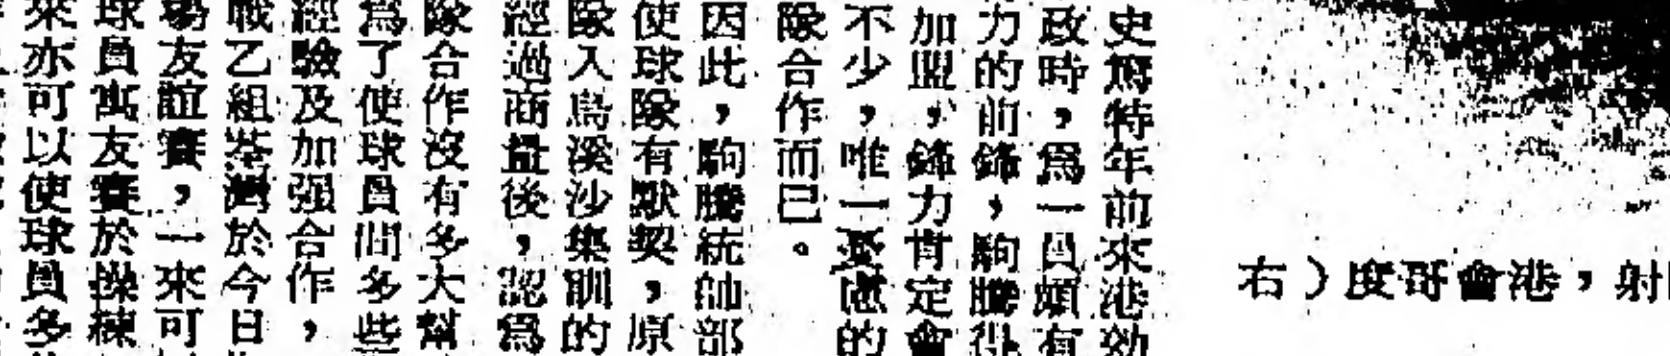 右）度哥會港，射
史篤特年前來港効
政時，爲一員頗有
力的前鋒，駒騰得
加盟，鋒力肯定會
不少，唯一憂慮的
隊合作而已。
因此，駒騰統帥部
使球隊有默契，原
隊入烏溪沙集訓的
經過商量後，認爲
隊合作沒有多大幫
爲了使球員間多些
經驗及加强合作，
戰乙組荃灣於今日
場友誼賽，一來可
球員寓友賽於操練
來亦可以使球員多